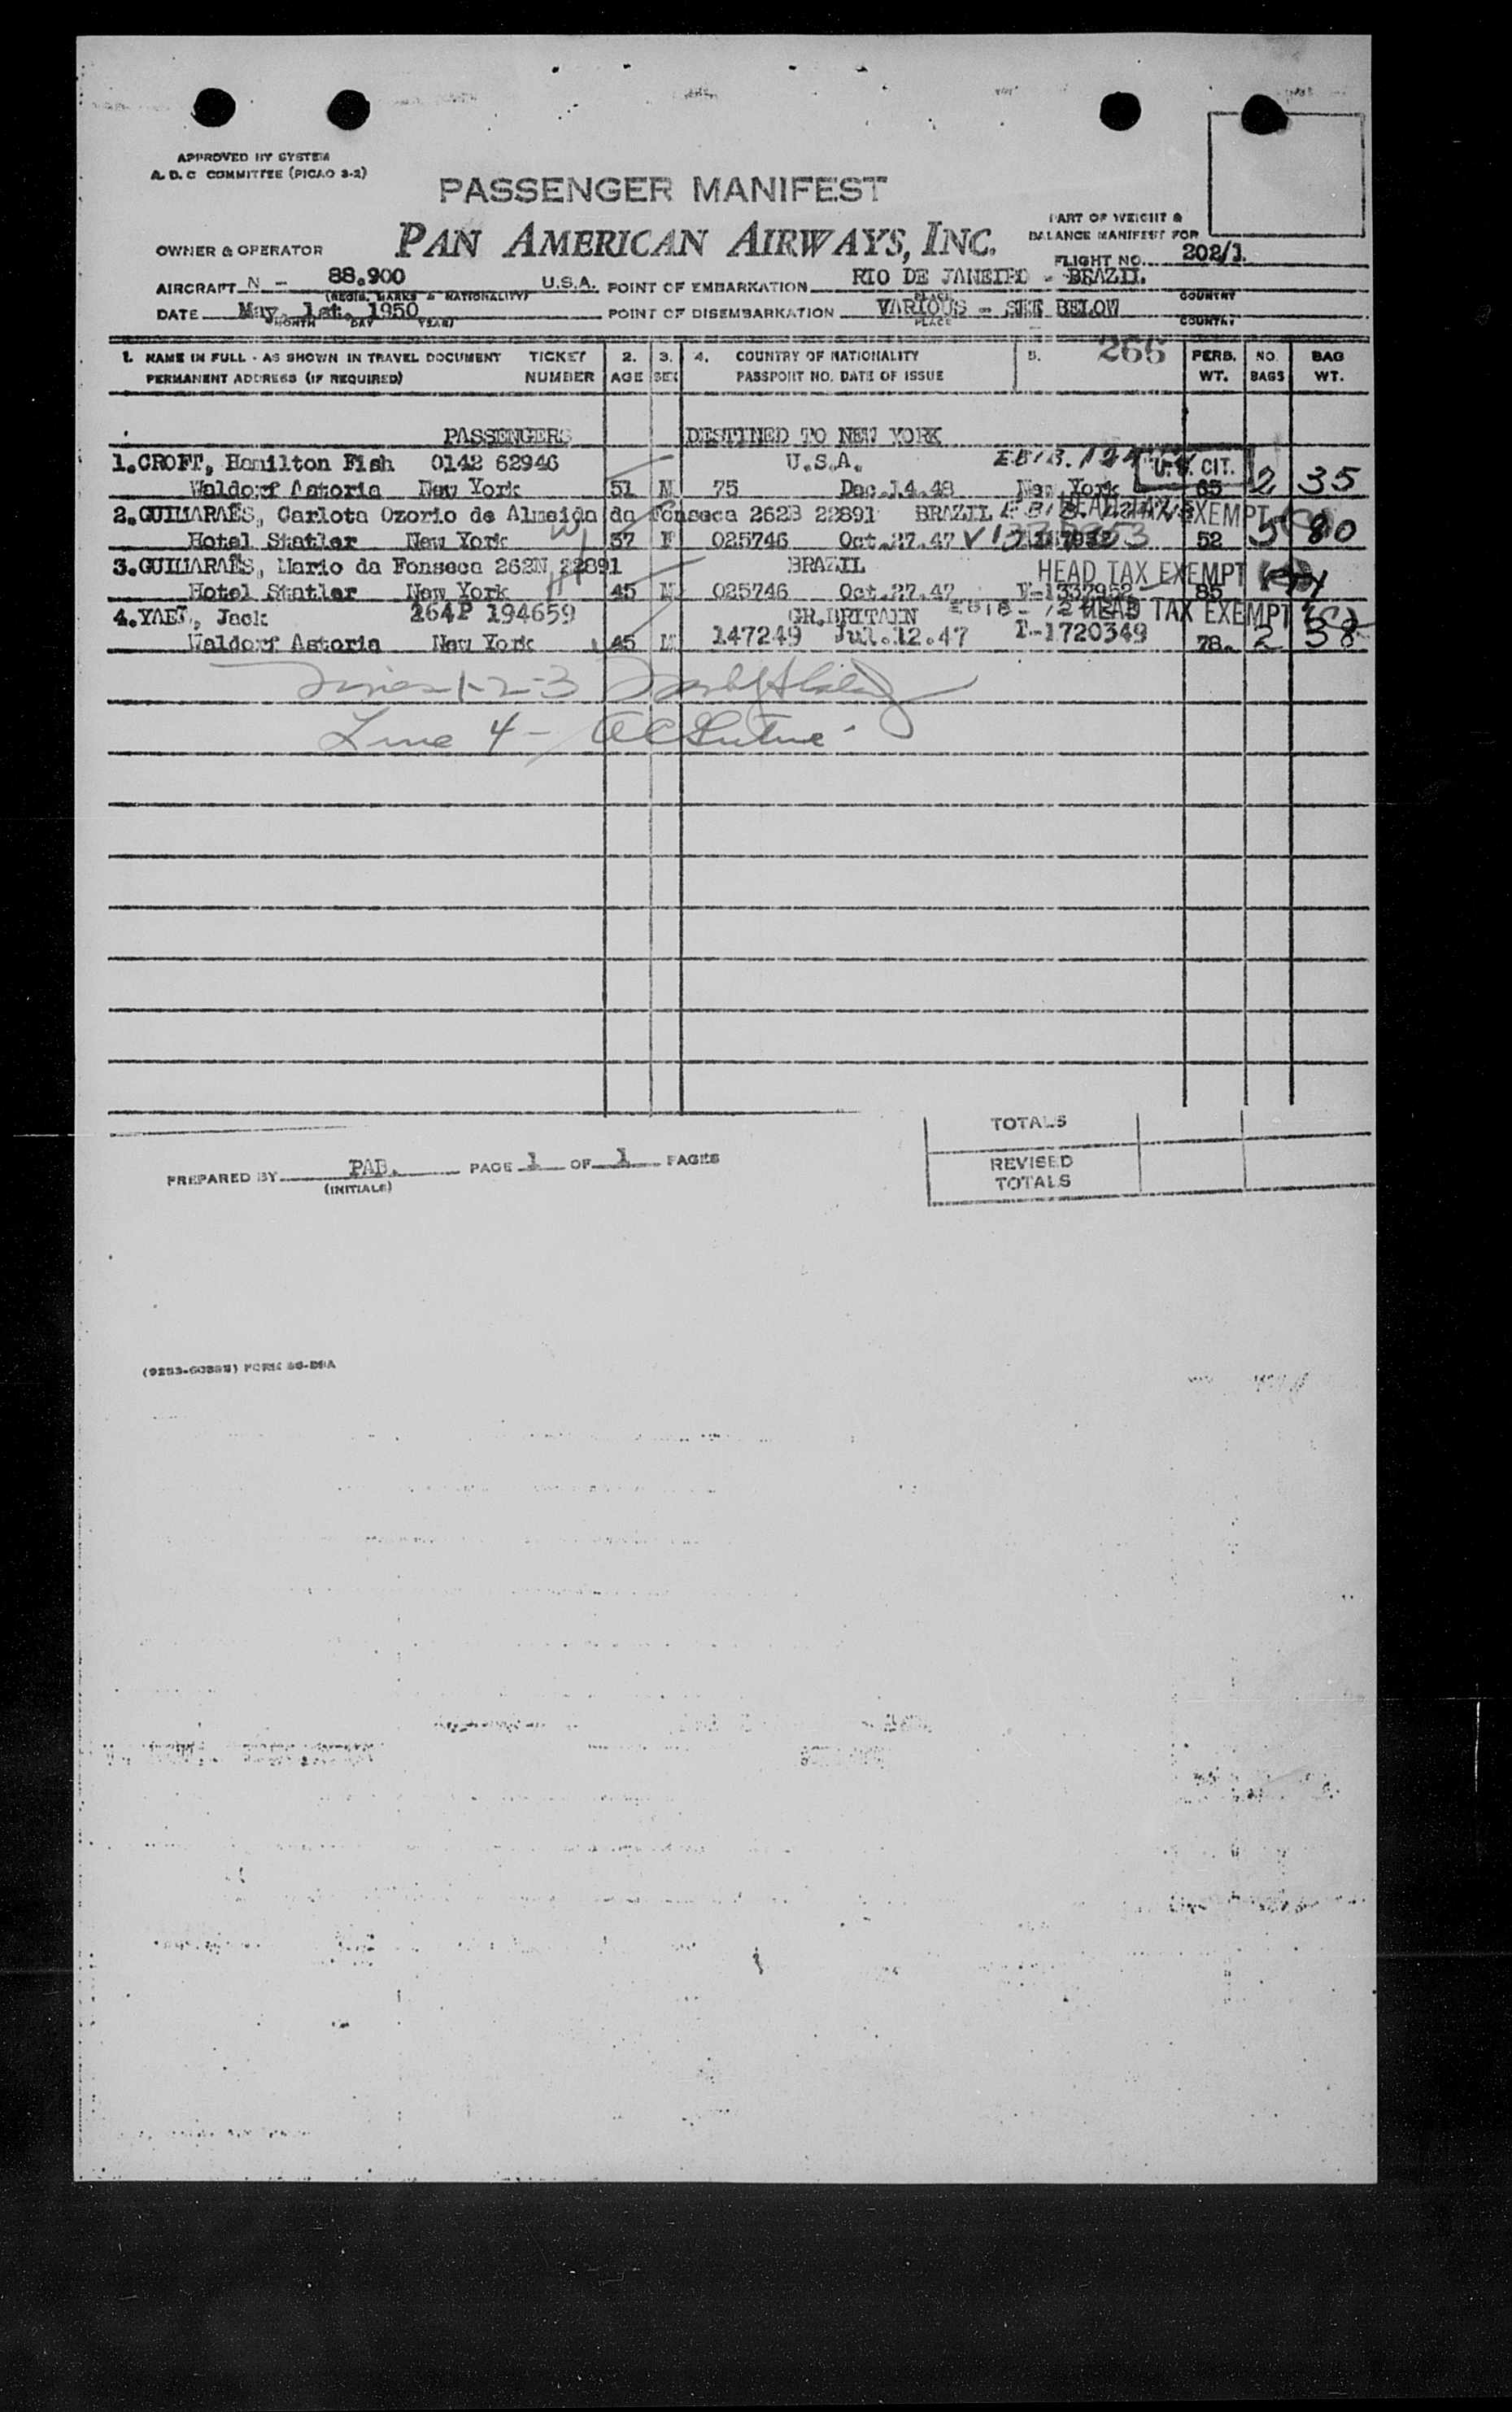 APPROVED BY SYSTEM
A. D. C COMMITTEE (PICAO 3-2)
PASSENGER MANIFEST
PAN AMERICAN AIRWAYS, INC.
PART OF WEIGHT &
BALANCE MANIFEST FOR
OWNER & OPERATOR
FLIGHT NO. 202/1
AIRCRAFT N - 88.900 U.S.A. POINT OF EMBARKATION RIO DE JANEIRO - BRAZIL.
(REGIS. MARKS & NATIONALITY) PLACE COUNTRY
DATE May. 1st. 1950 POINT OF DISEMBARKATION VARIOUS - SEE BELOW
MONTH DAY YEAR) PLACE COUNTRY
1. NAME IN FULL - AS SHOWN IN TRAVEL DOCUMENT TICKET 2. 3. 4. COUNTRY OF NATIONALITY 5. 266 PERS. NO. BAG
PERMANENT ADDRESS (IF REQUIRED) NUMBER AGE SEX PASSPORT NO. DATE OF ISSUE WT. BAGS WT.
PASSENGERS DESTINED TO NEW YORK
1.CROFT, Hamilton Fish 0142 62946 U.S.A. U.S. CIT.
Waldorf Astoria New York 51 M 75 Dec.14.48 New York 65 2 35
2.GUIMARAES, Carlota Ozorio de Almeida da Fonseca 262B 22891 BRAZIL HEAD TAX EXEMPT
Hotel Statler New York 37 F 025746 Oct.27.47 52 5 80
3.GUIMARAES, Mario da Fonseca 262N 22891 BRAZIL HEAD TAX EXEMPT
Hotel Statler New York 45 M 025746 Oct.27.47 V-1337952 85
4.YAEL, Jack 264P 194659 GR.BRITAIN HEAD TAX EXEMPT
Waldorf Astoria New York 45 M 147249 Jul.12.47 I-1720349 78. 2 38
Lines 1-2-3
Line 4 -
TOTALS
PREPARED BY PAB. PAGE 1 OF 1 PAGES
(INITIALS)
REVISED
TOTALS